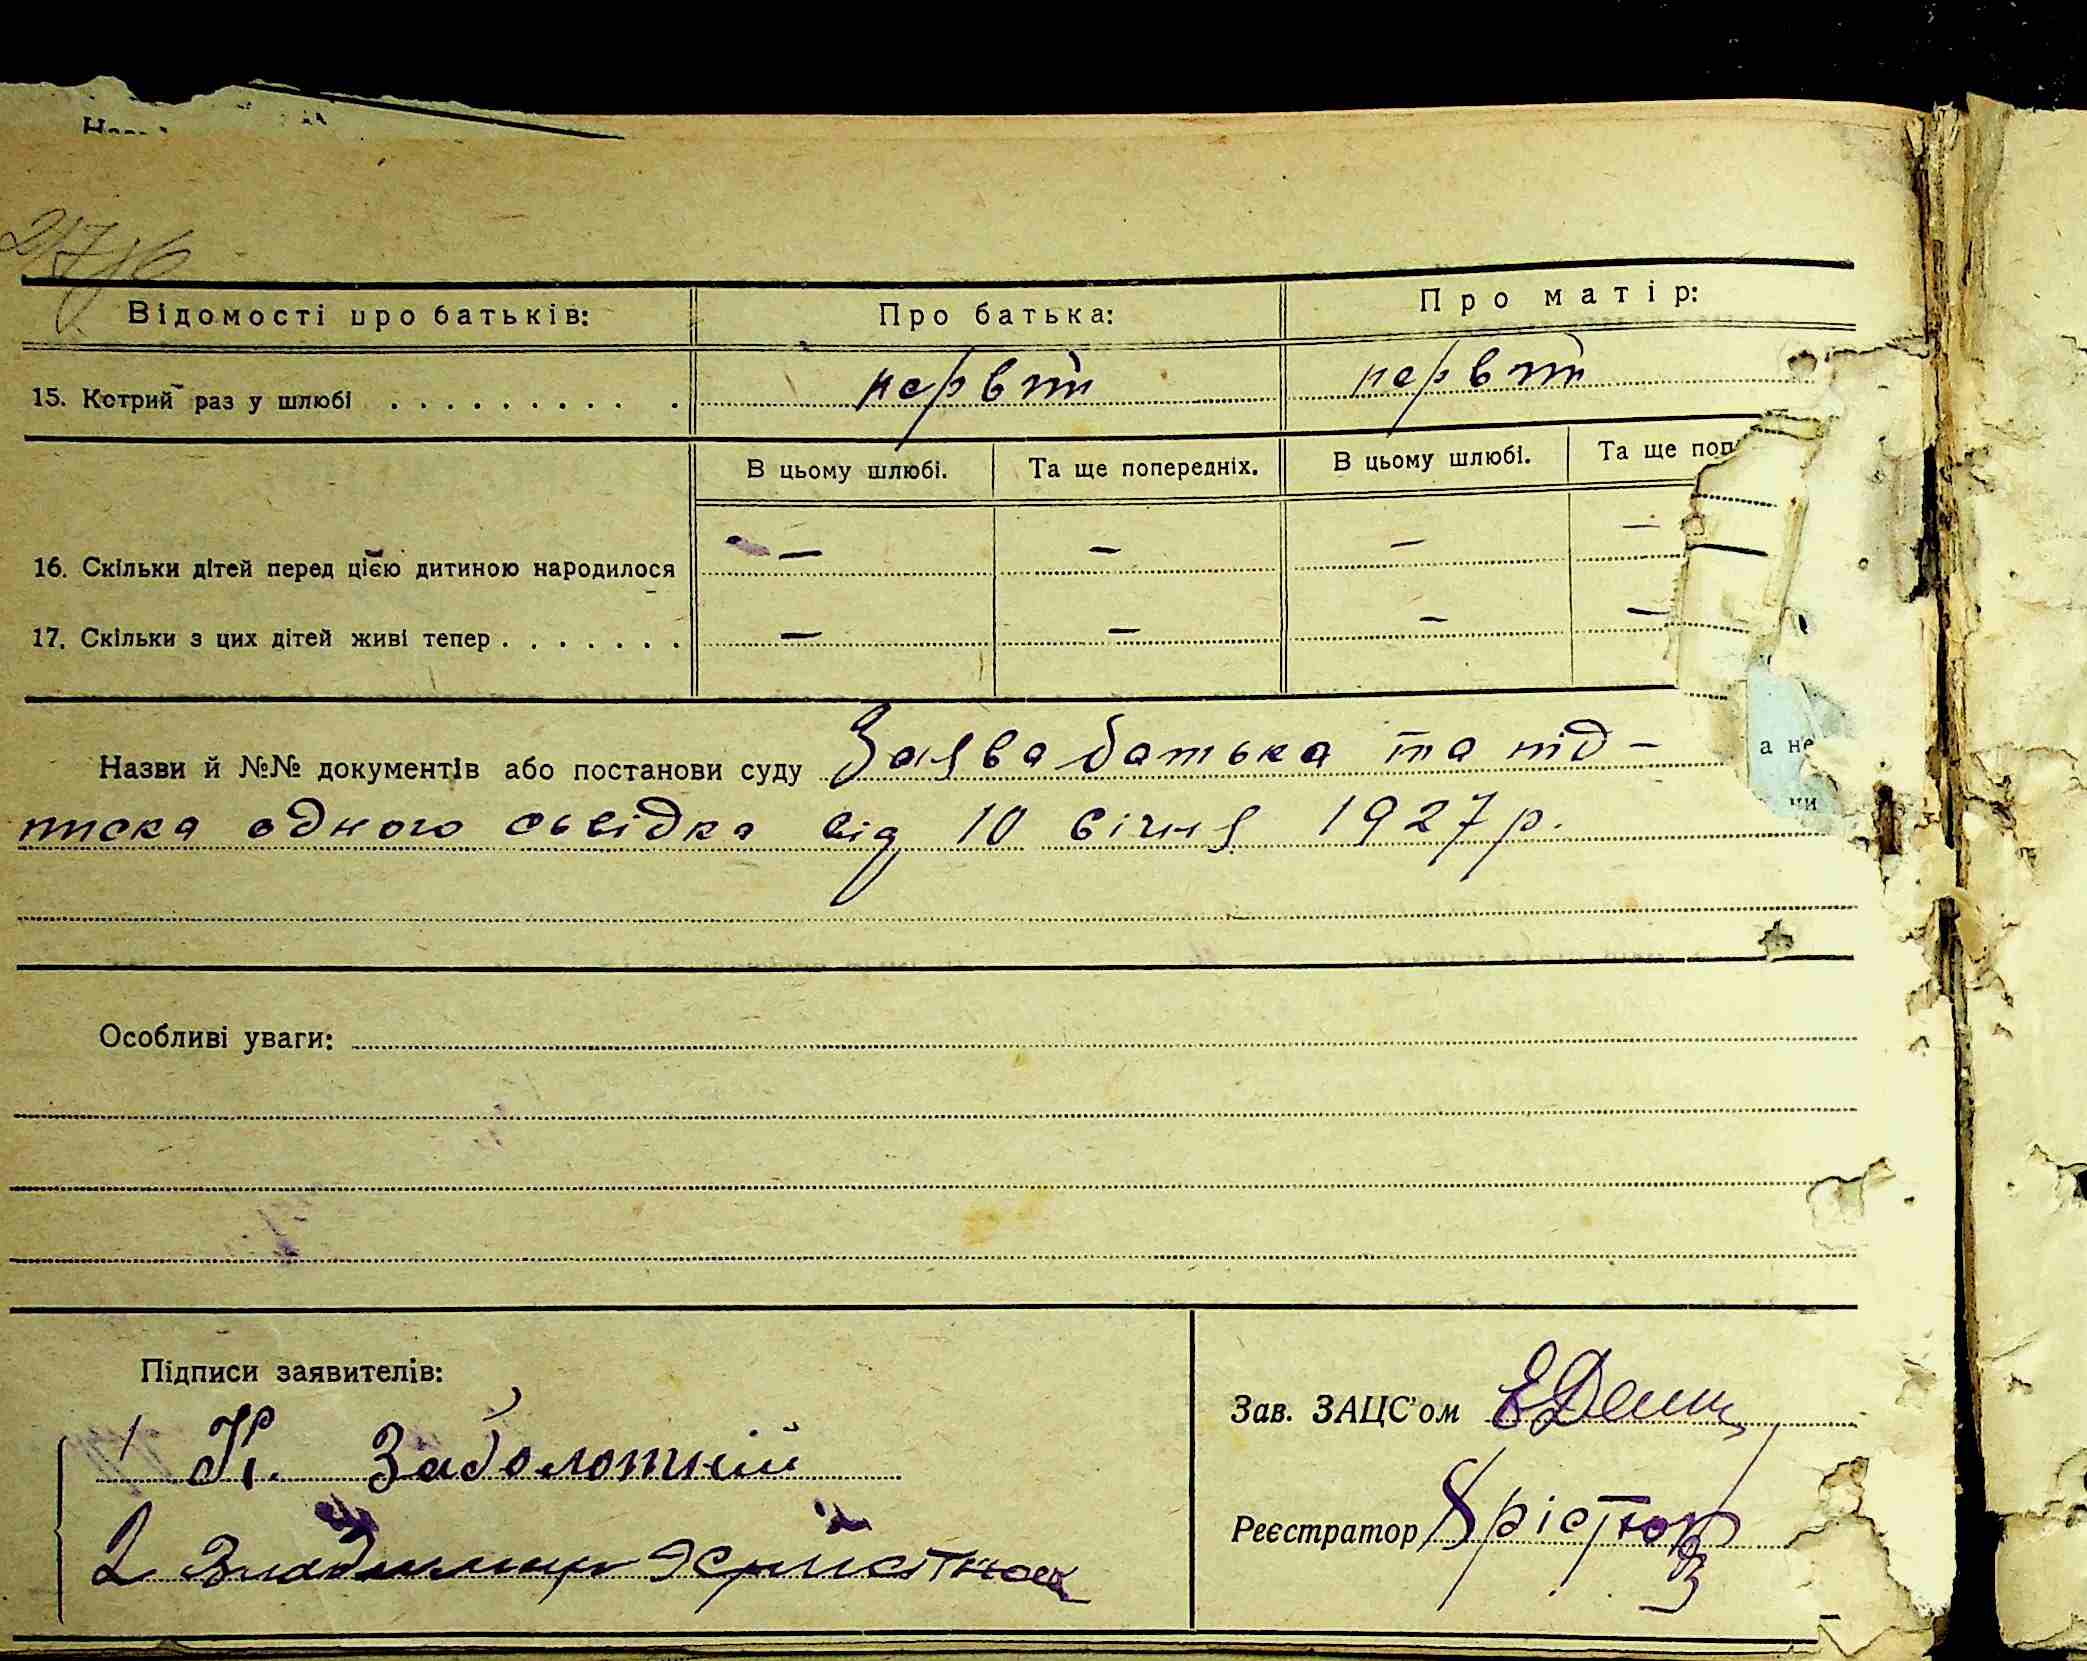 Відомості про батьків: Про батька: Про матір:
15. Котрий раз у шлюбі . . . . . . . . . . . первий первий
В цьому шлюбі. Та ще попередніх. В цьому шлюбі. Та ще поп
16. Скільки дітей перед цією дитиною народилося — — — —
17. Скільки з цих дітей живі тепер . . . . . . . — — — —
Назви й №№ документів або постанови суду Заява батька та під-
а не
писка одного сьвідка від 10 січня 1927 р.
Особливі уваги:
Підписи заявителів:
Зав. ЗАЦС'ом
1 К. Заболотний
Реєстратор
2 Владимир